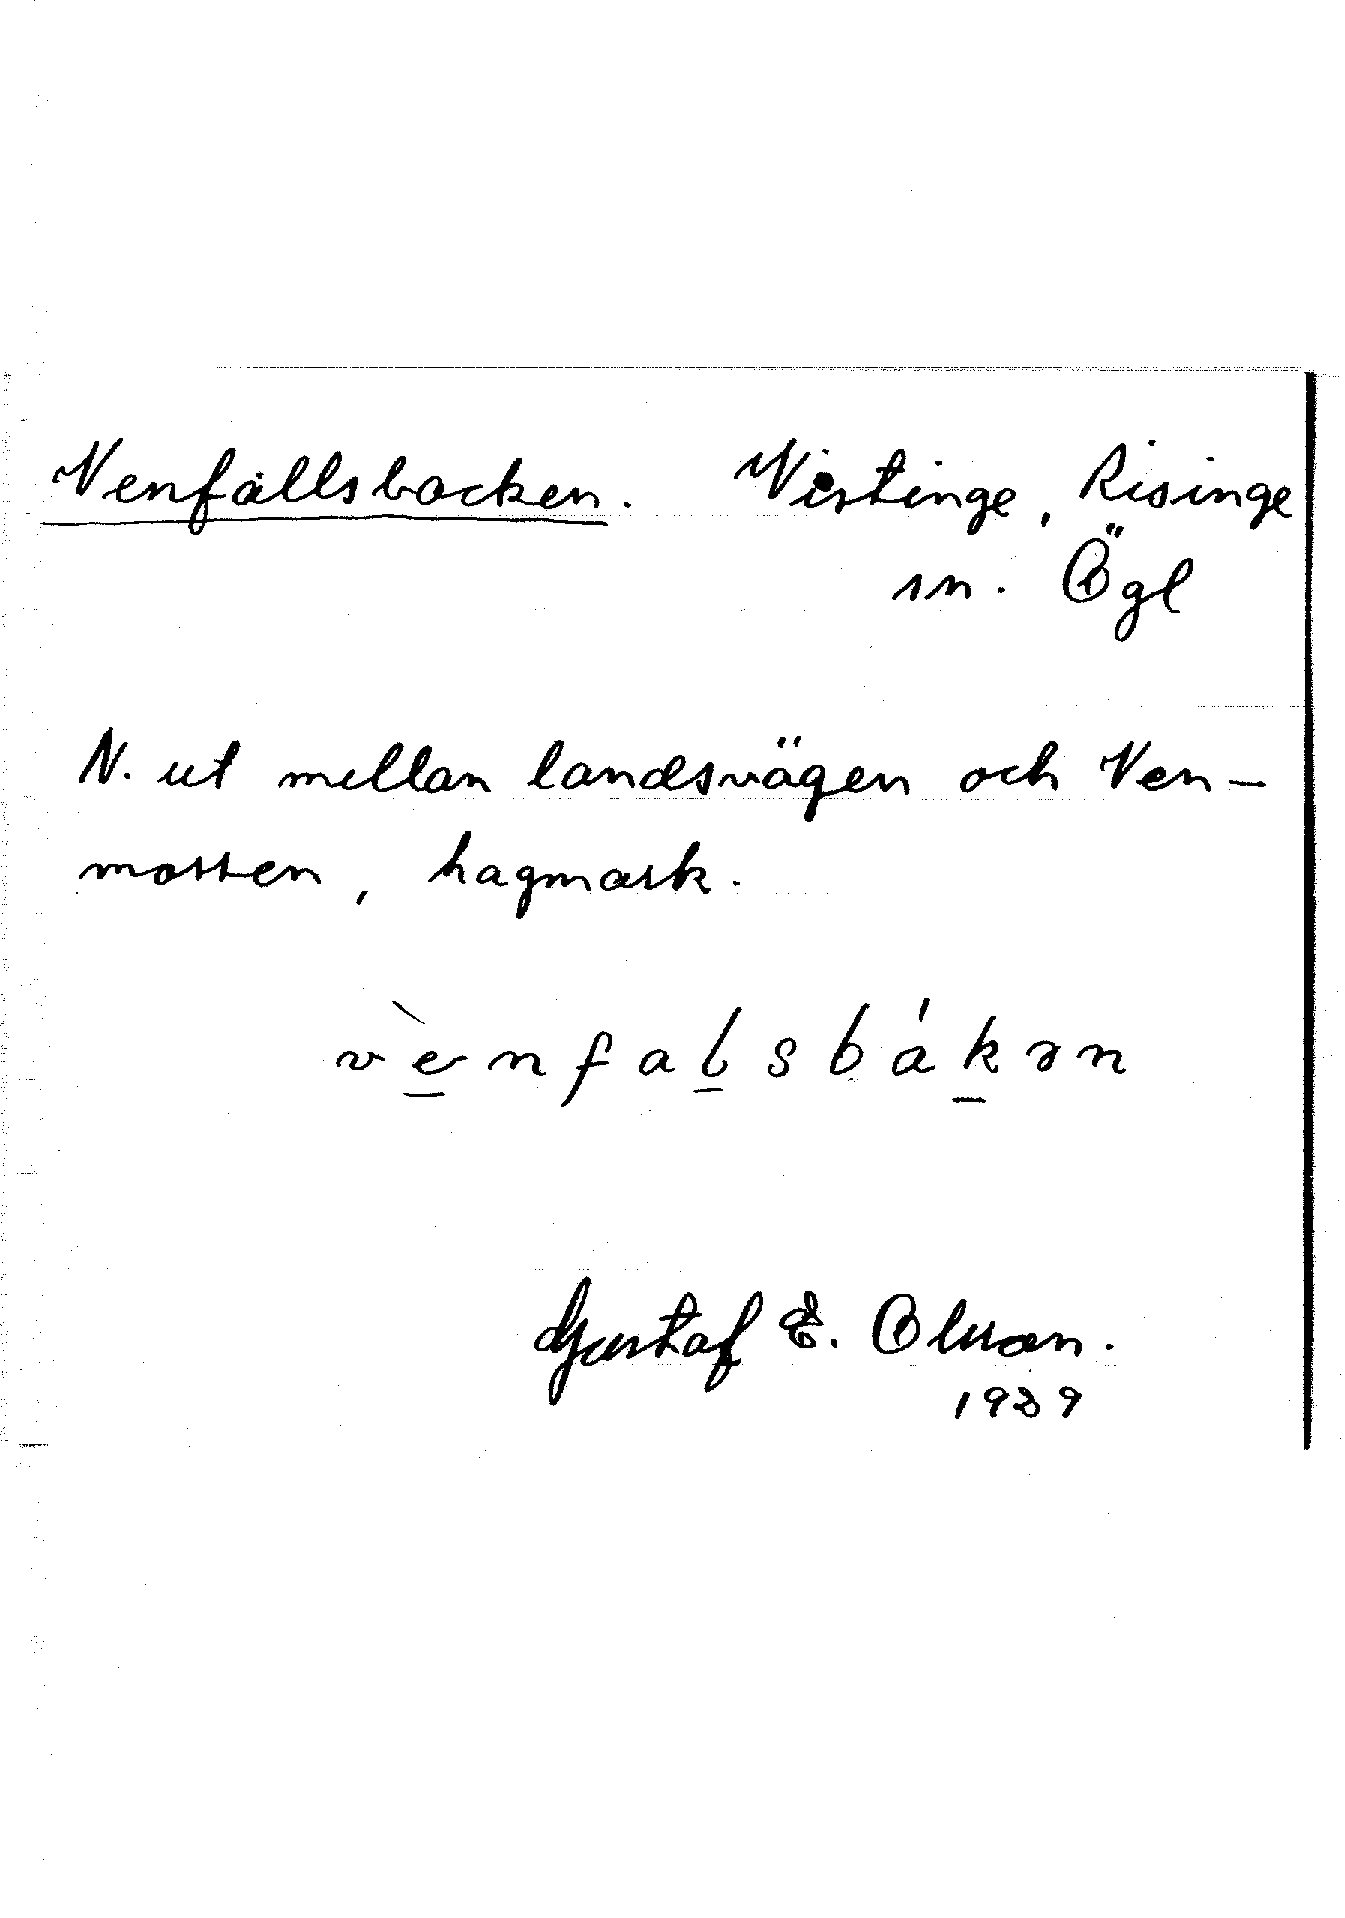 Venfallsbacken. Vistinge, Risinge
sn. Ögl
N. ut mellan landsvägen och Ven-
mossen, hagmark.
vènfalsbákən
Gustaf E. Olsson.
1939